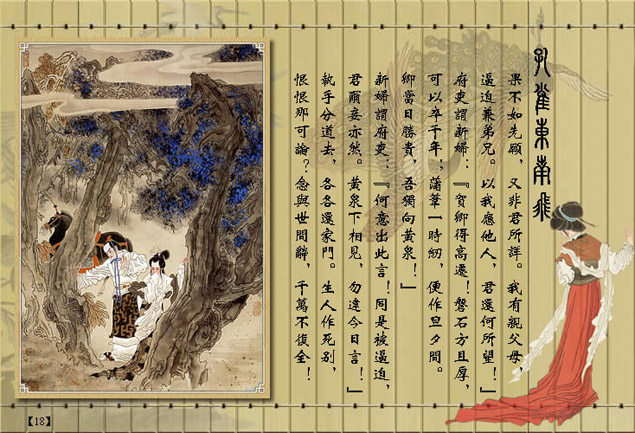 孔雀東南飛
果不如先願，又非君所詳。我有親父母，
逼迫兼弟兄。以我應他人，君還何所望！』
府吏謂新婦：『賀卿得高遷！磐石方且厚，
可以卒千年；蒲葦一時紉，便作旦夕間。
卿當日勝貴，吾獨向黃泉！』
新婦謂府吏：『何意出此言！同是被逼迫，
君爾妾亦然。黃泉下相見，勿違今日言！』
執手分道去，各各還家門。生人作死別，
恨恨那可論？念與世間辭，千萬不復全！
【18】